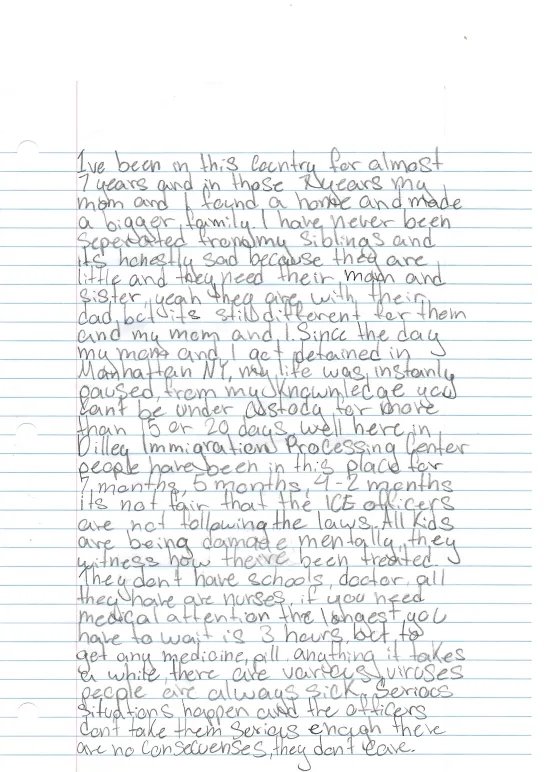 Ive been in this Country for almost
7 years and in those years my
mom and I found a home and made
a bigger family. I have never been
Seperated from my siblings and
its honestly sad because they are
little and they need their mom and
sister, yeah they are with their
dad, but its still different for them
and my mom and I. Since the day
my mom and I got detained in
Manhattan NY, my life was instantly
paused, from my knownledge you
cant be under custody for more
than 15 or 20 days, well here in
Dilley Immigration Processing Center
people have been in this place for
7 months, 5 months, 4-2 months
its not fair that the ICE officers
are not following the laws. All Kids
are being damage mentally, they
witness how been treated.
They don't have schools, doctor, all
they have are nurses, if you need
medical attention the longest you
have to wait is 3 hours, but to
get any medicine, pill, anything it takes
a while, there are various viruses
people are always sick, Serious
Situations happen and the officers
dont take them serious enough there
are no consecuenses, they don't care.